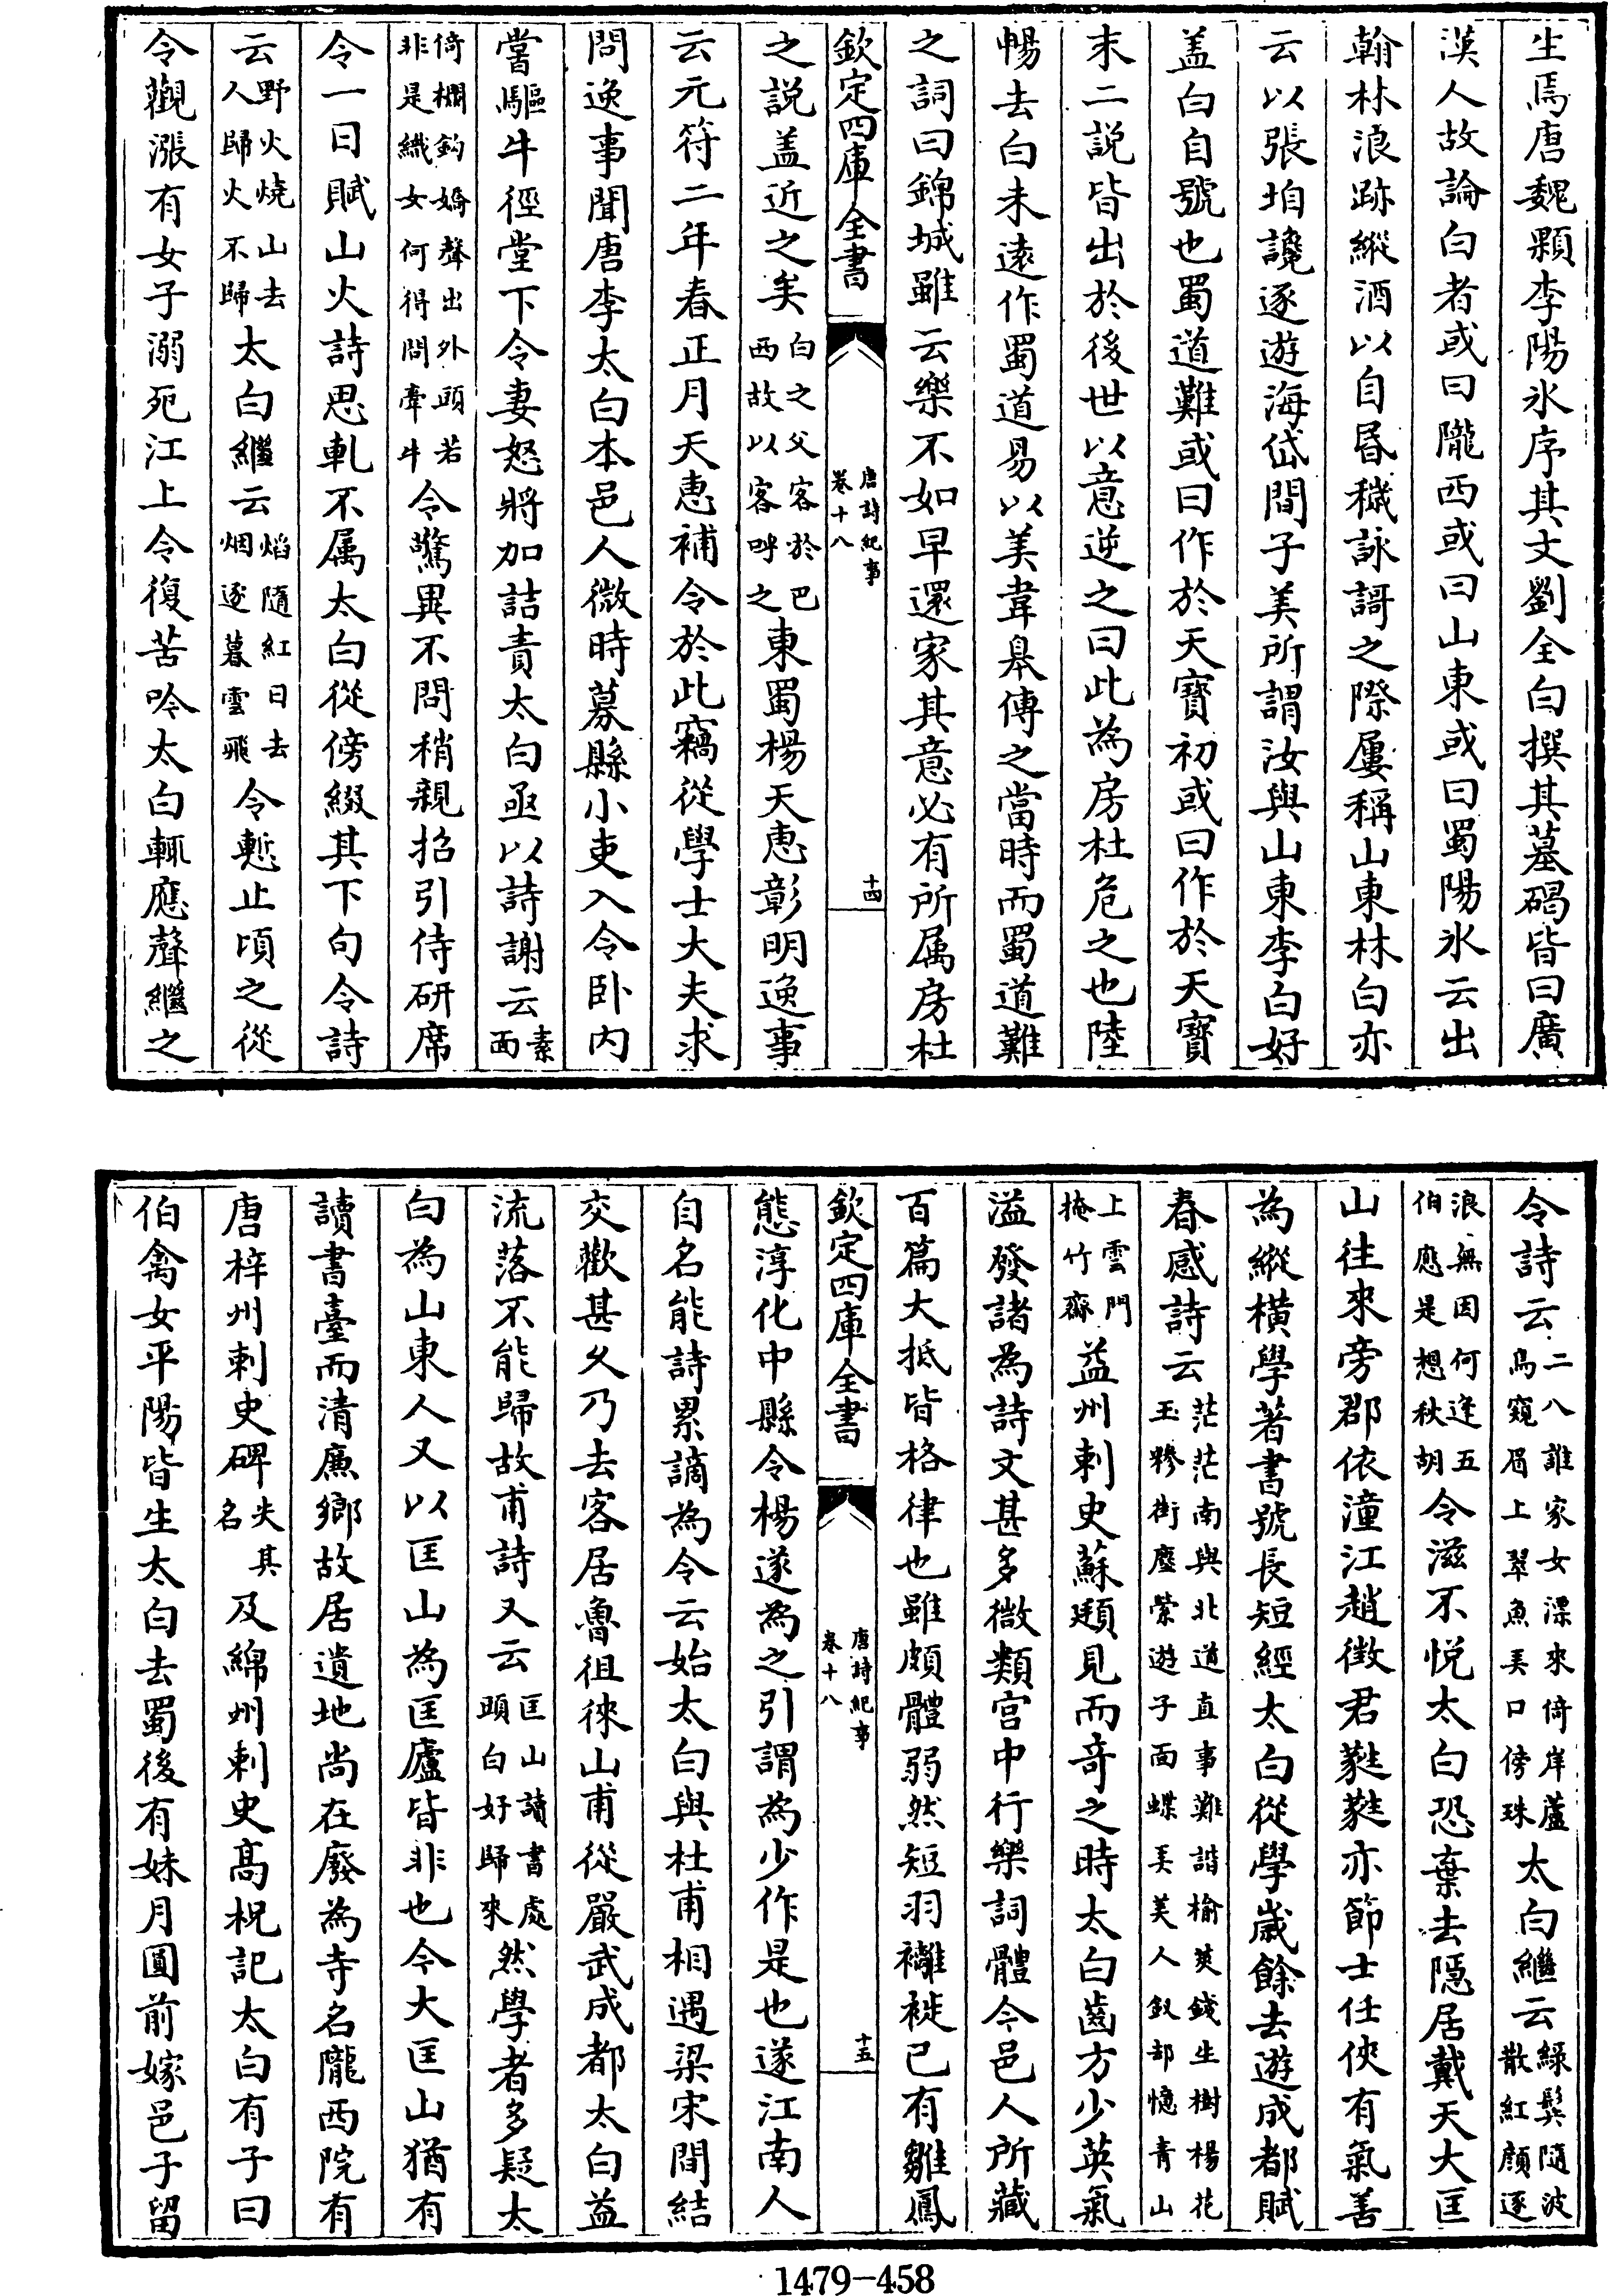 生焉唐魏顥李陽氷序其文劉全白撰其墓碣皆曰廣
漢人故論白者或曰隴西或曰山東或曰蜀陽氷云出
翰林浪跡縱酒以自昏穢詠謌之際屢稱山東林白亦
云以張垍讒逐遊海岱間子美所謂汝與山東李白好
盖白自號也蜀道難或曰作於天寶初或曰作於天寶
末二説皆出於後世以意逆之曰此為房杜危之也陸
暢去白未遠作蜀道易以美韋臯傳之當時而蜀道難
之詞曰錦城雖云樂不如早還家其意必有所属房杜
欽定四庫全書 唐詩紀事 卷十八 十四
之説盖近之矣白之父客於巴西故以客呼之東蜀楊天恵彰明逸事
云元符二年春正月天恵補令於此竊從學士大夫求
問逸事聞唐李太白本邑人微時募縣小吏入令卧内
嘗驅牛徑堂下令妻怒將加詰責太白亟以詩謝云素面
倚欄鈎嬌聲出外頭若非是織女何得問牽牛令驚異不問稍親招引侍研席
令一日賦山火詩思軋不属太白從傍綴其下句令詩
云野火燒山去人歸火不歸太白繼云焰隨紅日去烟逐暮雲飛令慙止頃之從
令觀漲有女子溺死江上令復苦吟太白輒應聲繼之
令詩云二八誰家女漂來倚岸蘆鳥窺眉上翠魚弄口傍珠太白繼云綠鬂隨波散紅顔逐
浪無因何逢伍伯應是想秋胡令滋不悦太白恐棄去隠居戴天大匡
山往來旁郡依潼江趙徴君蕤蕤亦節士任俠有氣善
為縱横學著書號長短經太白從學嵗餘去遊成都賦
春感詩云茫茫南與北道直事難諧榆莢錢生樹楊花玉糝街塵縈遊子面蝶弄美人釵却憶青山
上雲門掩竹齋益州刺史蘇頲見而奇之時太白齒方少英氣
溢發諸為詩文甚多微類宫中行樂詞體今邑人所藏
百篇大抵皆格律也雖頗體弱然短羽褵褷已有雛鳳
欽定四庫全書 唐詩紀事 卷十八 十五
態淳化中縣令楊遂為之引謂為少作是也遂江南人
自名能詩累謫為令云始太白與杜甫相遇梁宋間結
交歡甚乆乃去客居魯徂徠山甫從嚴武成都太白益
流落不能歸故甫詩又云匡山讀書處頭白好歸來然學者多疑太
白為山東人又以匡山為匡廬皆非也今大匡山猶有
讀書臺而清廉鄉故居遺地尚在廢為寺名隴西院有
唐梓州刺史碑失其名及綿州刺史髙祝記太白有子曰
伯禽女平陽皆生太白去蜀後有妹月圓前嫁邑子留
1479-458